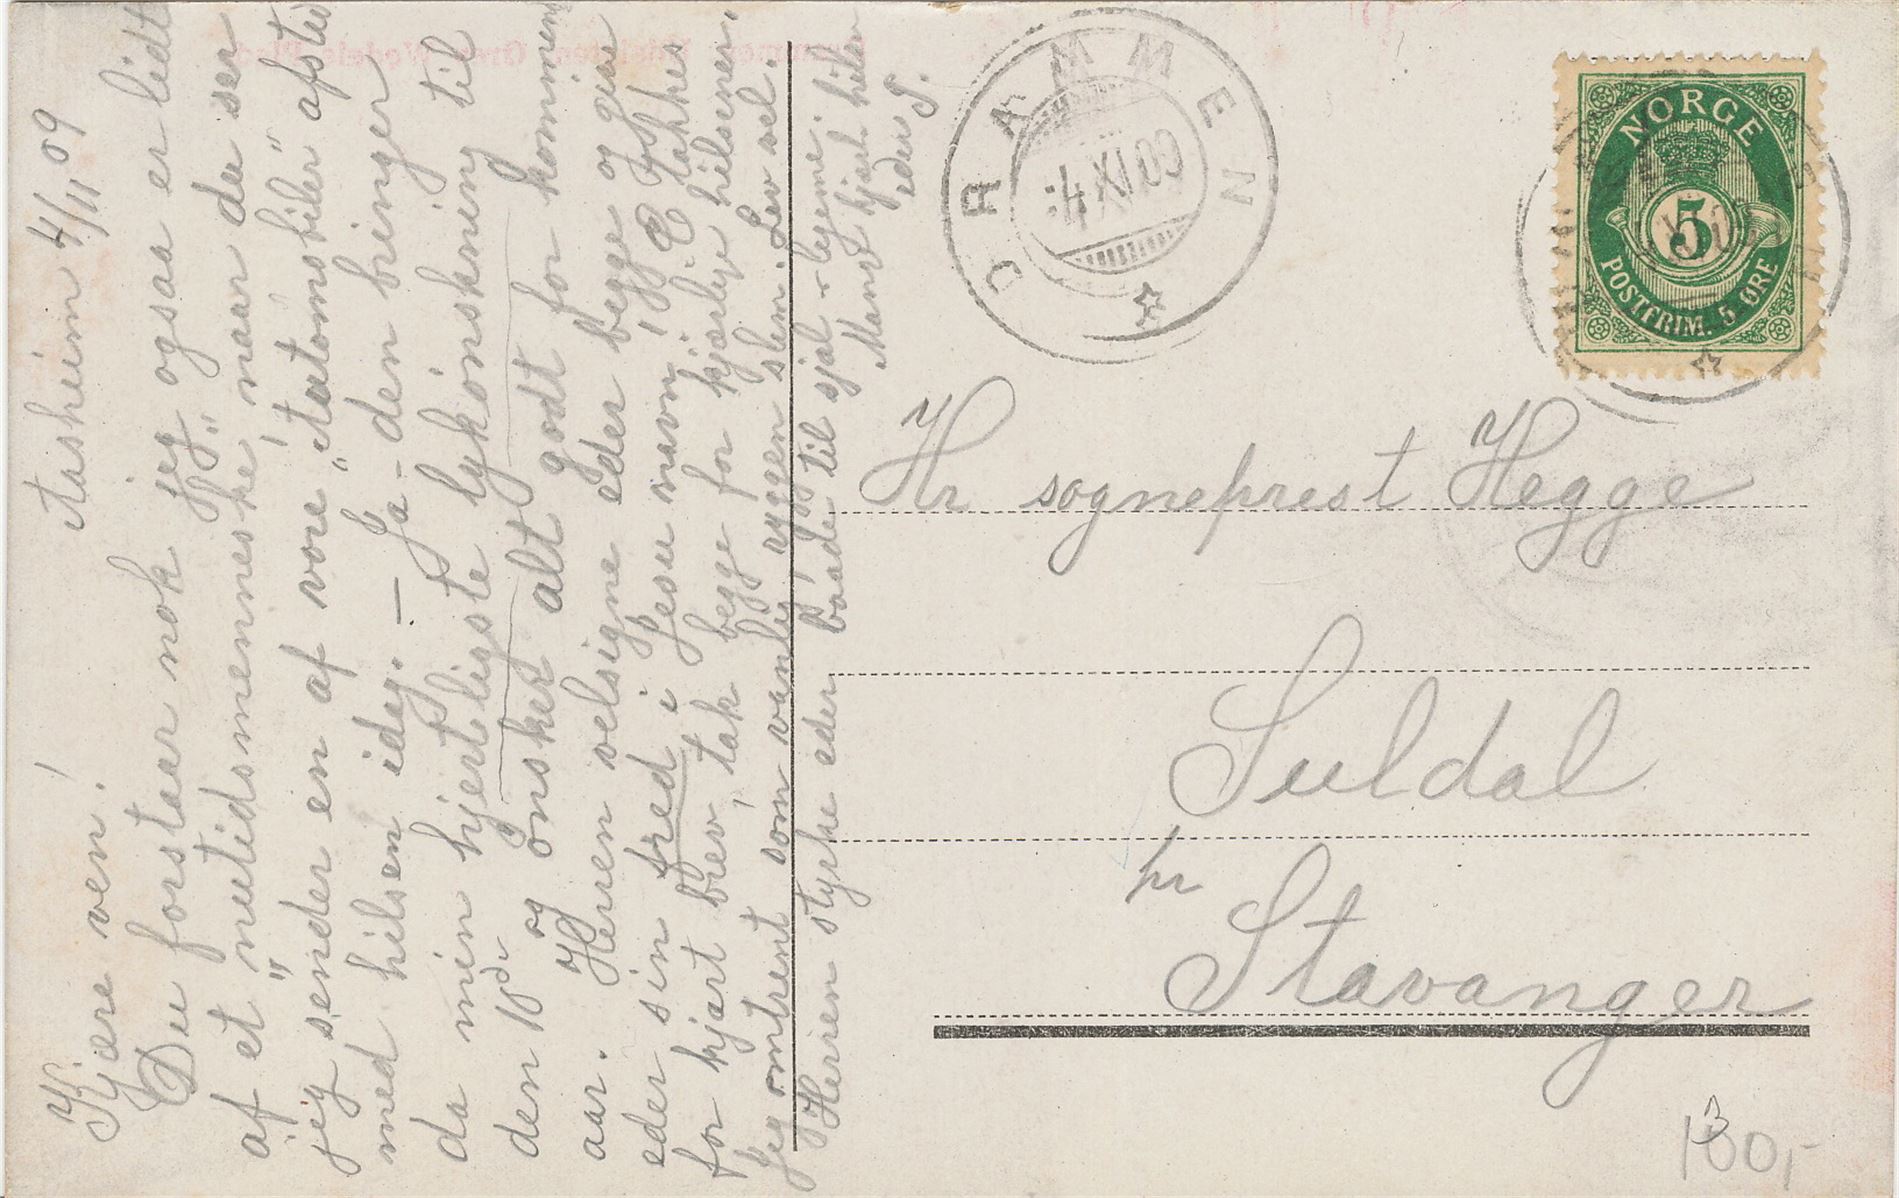 Aasheim 4/11 09
Kjære ven!
Du forstaar nok jeg ogsaa er lidt
af et "nutidsmenneske", naar du ser
jeg sender en af vore "Automobiler" afsted
med hilsen idag. — Ja - den bringer
da min hjerteligste lykönskning til
den 10de og önsker alt godt for kommende
aar. Herren velsigne eder begge og give
eder sin fred i Jesu navn!
for kjært brev, tak begge for kjærlige hilsener.
Jeg omtrent som vanlig, ryggen slem. Lev vel.
Herren styrke eder baade til sjæl - legeme.
Mand hjert. hilser
eders S.
DRAMMEN
4 IX 09
NORGE
5
POSTFRIM. 5 ØRE
Hr sogneprest Hegge
Suldal
pr
Stavanger
100,-